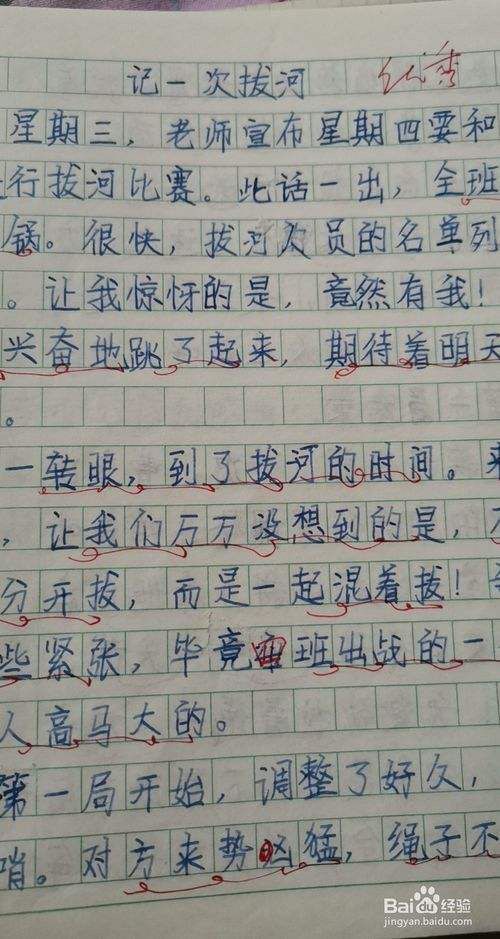 记一次拔河 优秀
星期三，老师宣布星期四要和
行拔河比赛。此话一出，全班
锅。很快，拔河人员的名单列
。让我惊讶的是，竟然有我！
兴奋地跳了起来，期待着明天
。
一转眼，到了拔河的时间。来
，让我们万万没想到的是，
分开拔，而是一起混着拔！
些紧张，毕竟班出战的一
人高马大的。
第一局开始，调整了好久，
哨。对方来势凶猛，绳子不
Baidu经验
jingyan.baidu.com